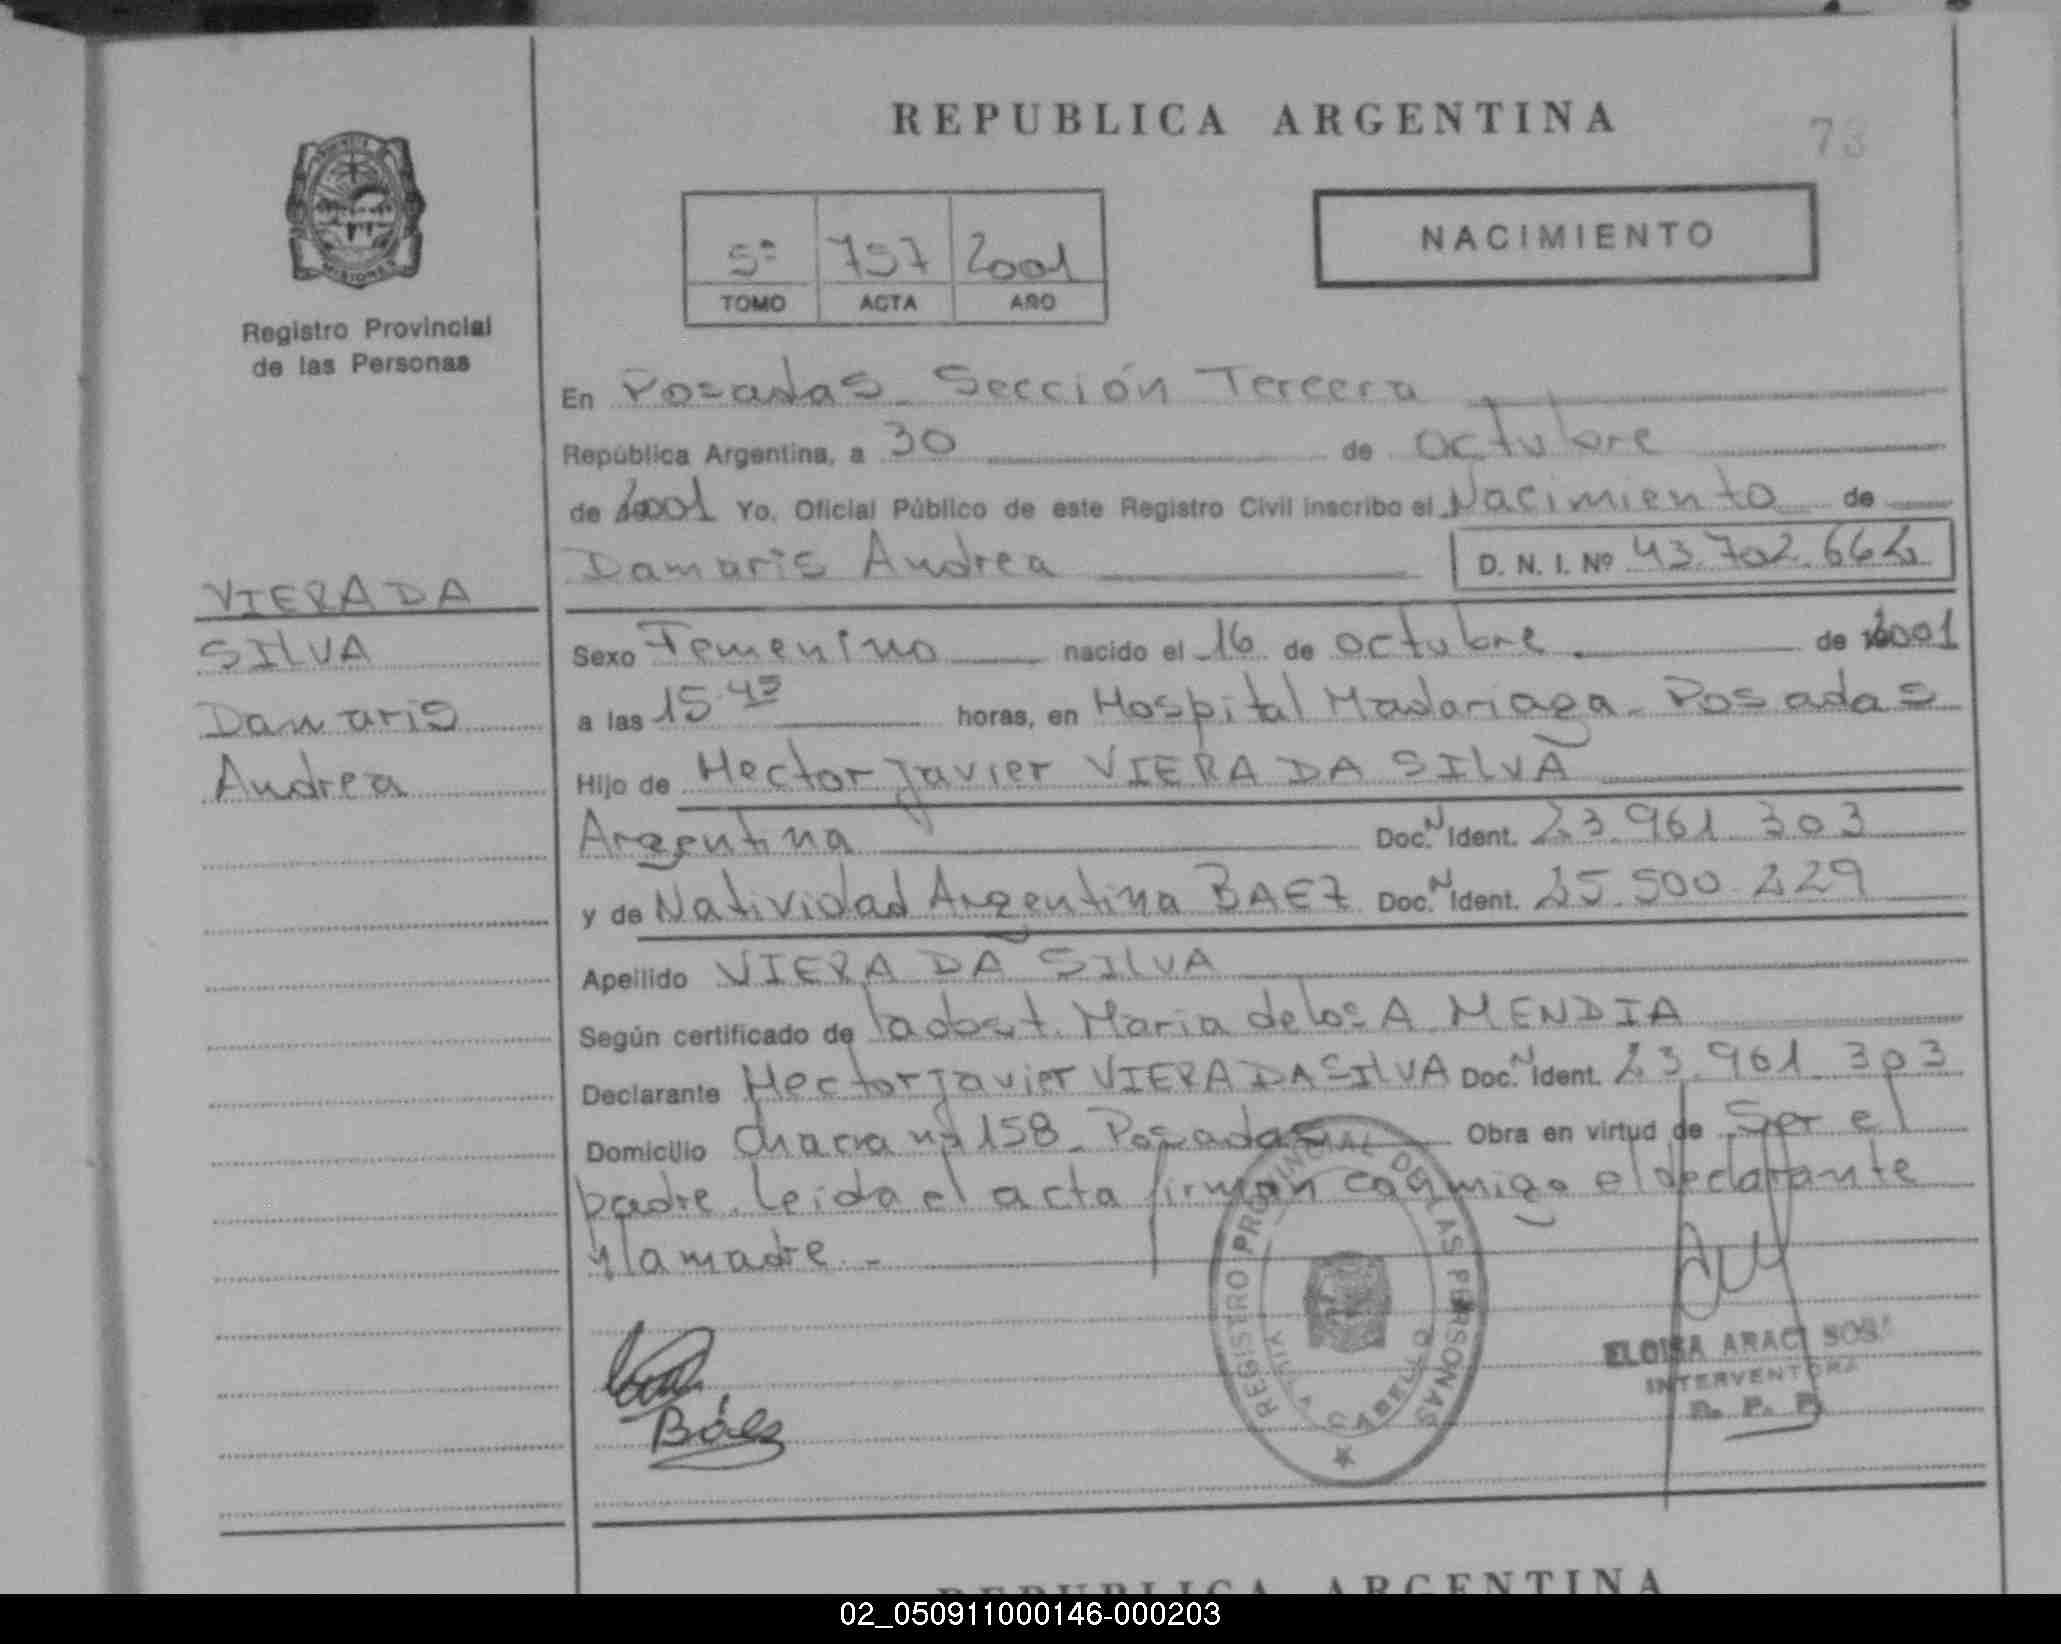 REPUBLICA ARGENTINA
73
MISIONES
Registro Provincial
de las Personas
5º 757 2001
TOMO ACTA AÑO
NACIMIENTO
En Posadas Sección Tercera
República Argentina, a 30 de octubre
de 2001 Yo, Oficial Público de este Registro Civil inscribo el Nacimiento de
Damaris Andrea D. N. I. Nº 43.702.662
VIERA DA
SILVA
Damaris
Andrea
Sexo Femenino nacido el 16 de octubre de 2001
a las 15.45 horas, en Hospital Madariaga - Posadas
Hijo de Hector Javier VIERA DA SILVA
Argentina Doc. N Ident. 23.961.303
y de Natividad Argentina BAEZ Doc. N Ident. 25.500.229
Apellido VIERA DA SILVA
Según certificado de la obst. Maria de los A. MENDIA
Declarante Hector Javier VIERA DA SILVA Doc. N Ident. 23.961.303
Domicilio Chacra nº 158 - Posadas Obra en virtud de Ser el
padre. Leida el acta firman conmigo el declarante
y la madre. -
Báez
REGISTRO PROVINCIAL DE LAS PERSONAS
ELOISA ARACI SOSA
INTERVENTORA
R. P. P.
REPUBLICA ARGENTINA
02_050911000146-000203